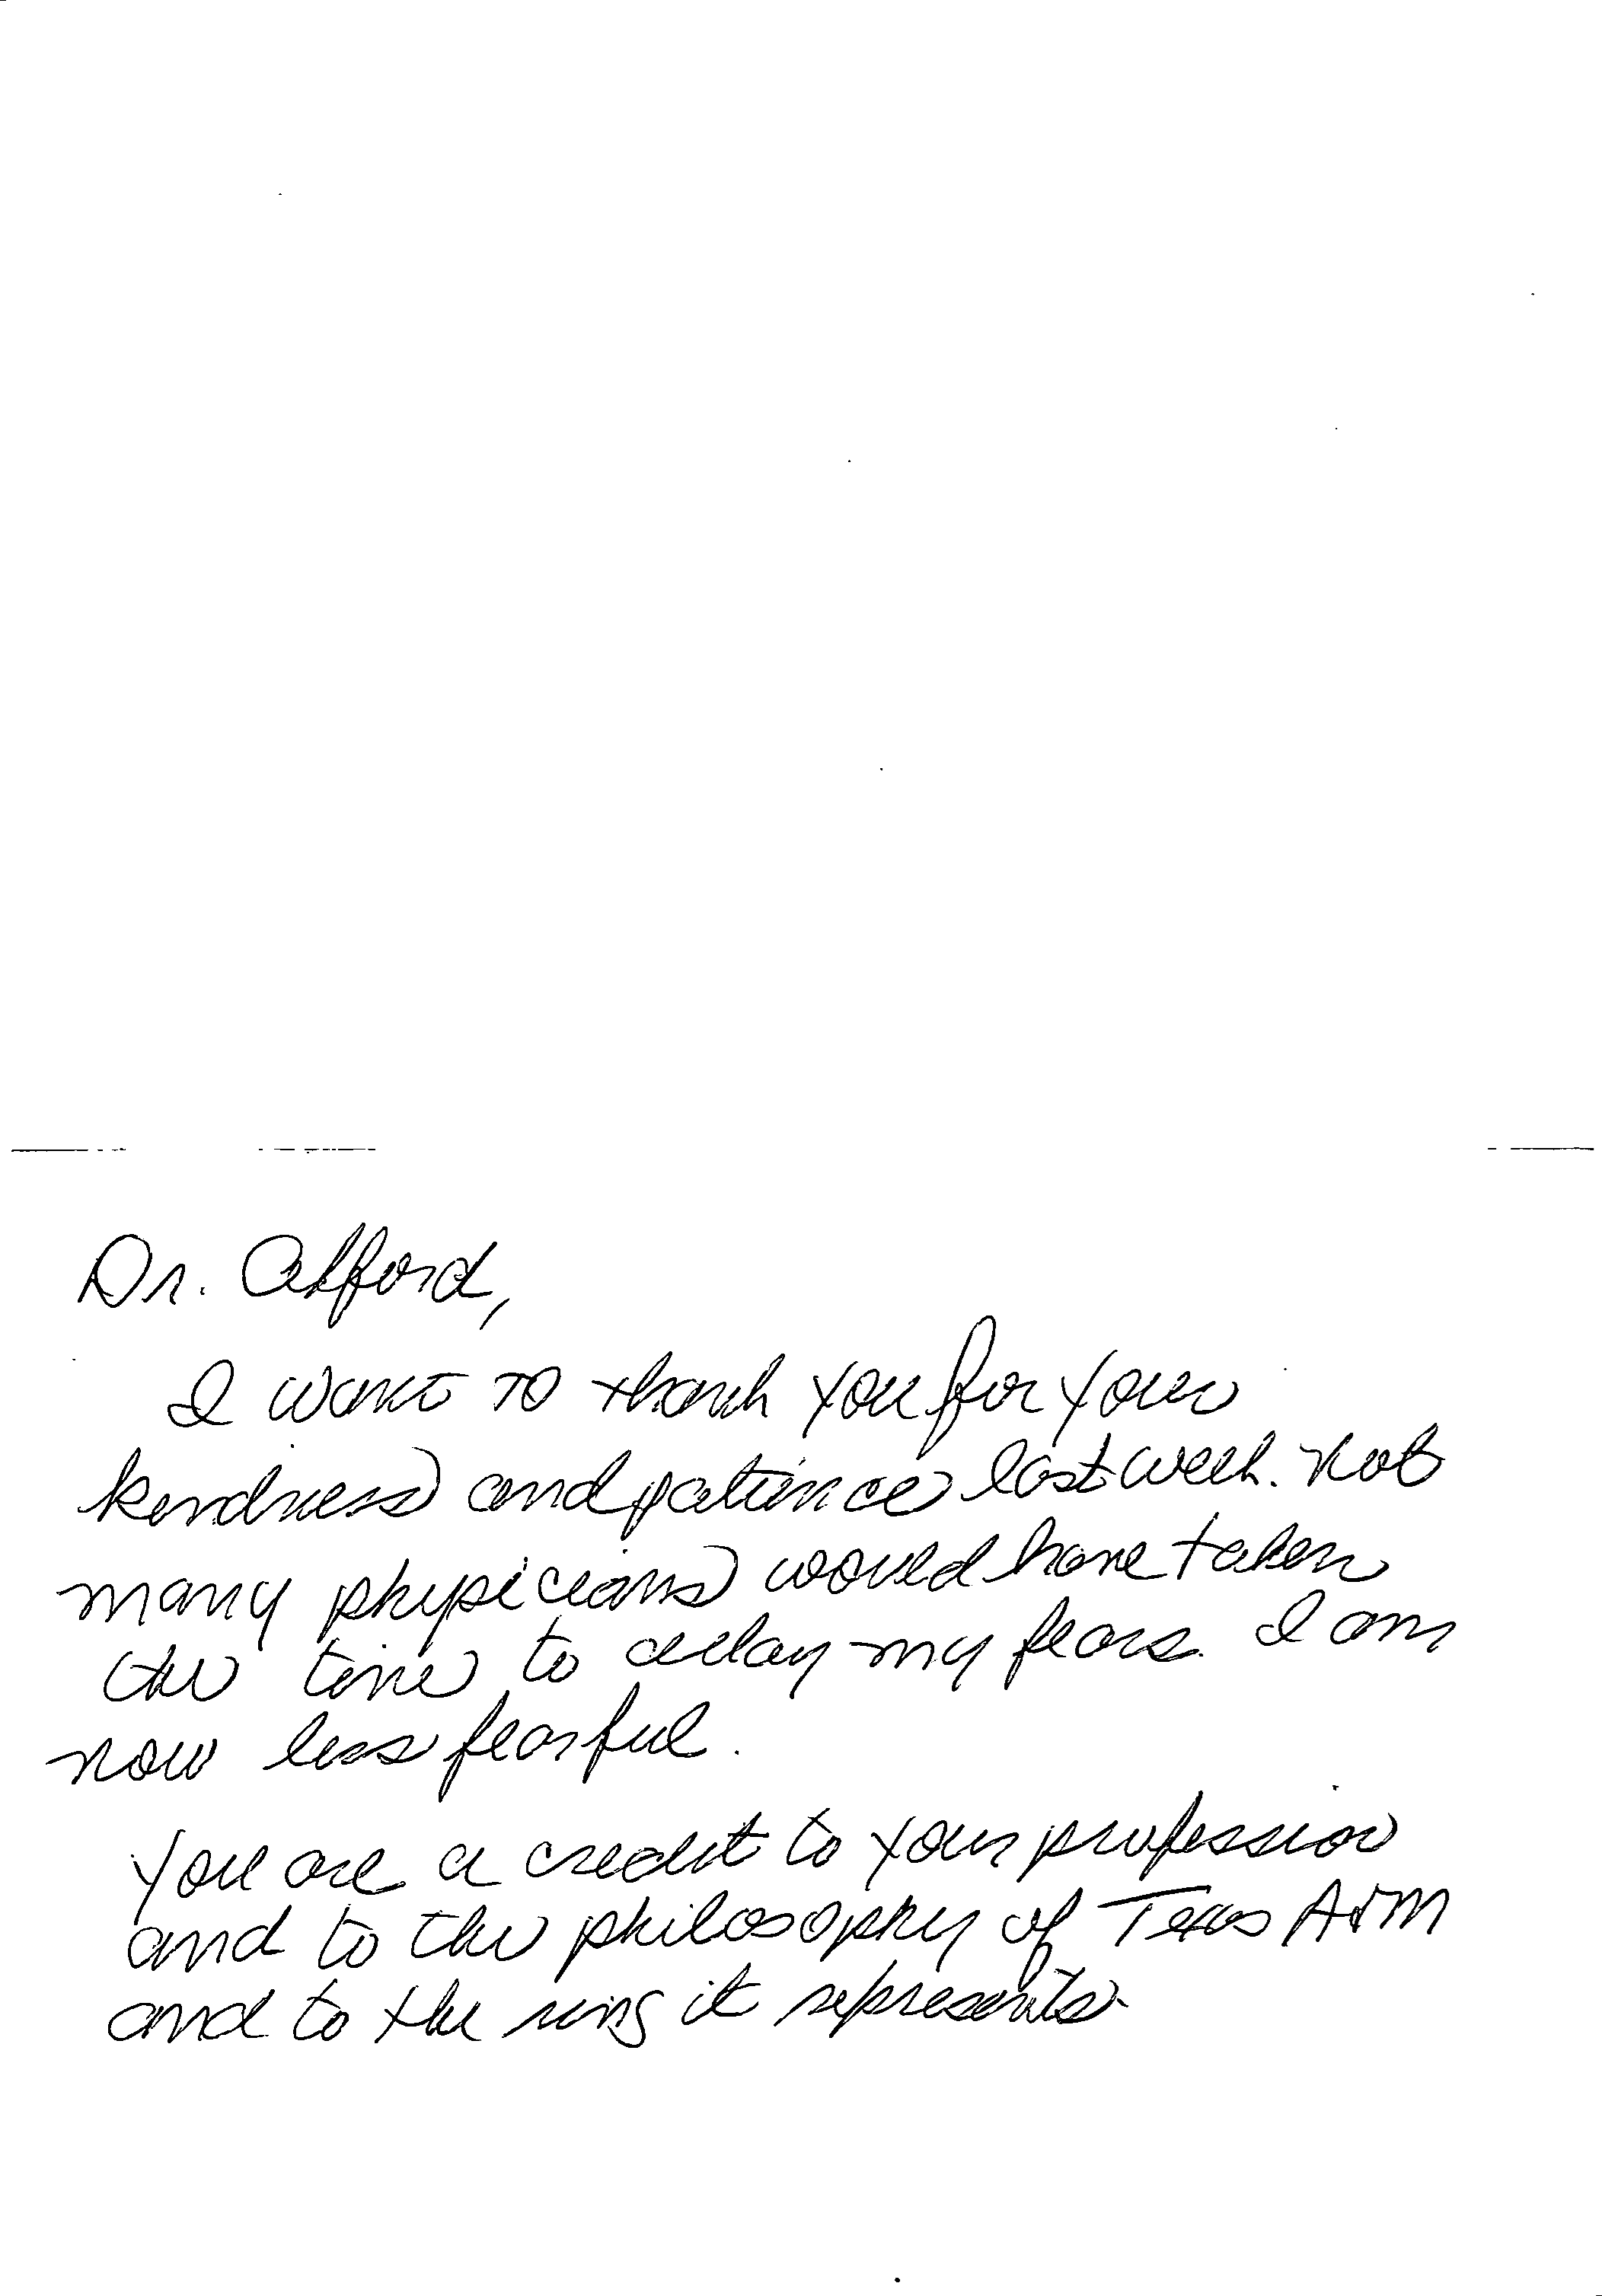 Dr. Alford,
I want to thank you for your
kindness and patience last week. Not
many physicians would have taken
the time to allay my fears. I am
now less fearful.
You are a credit to your profession
and to the philosophy of Texas A&M
and to the ring it represents.